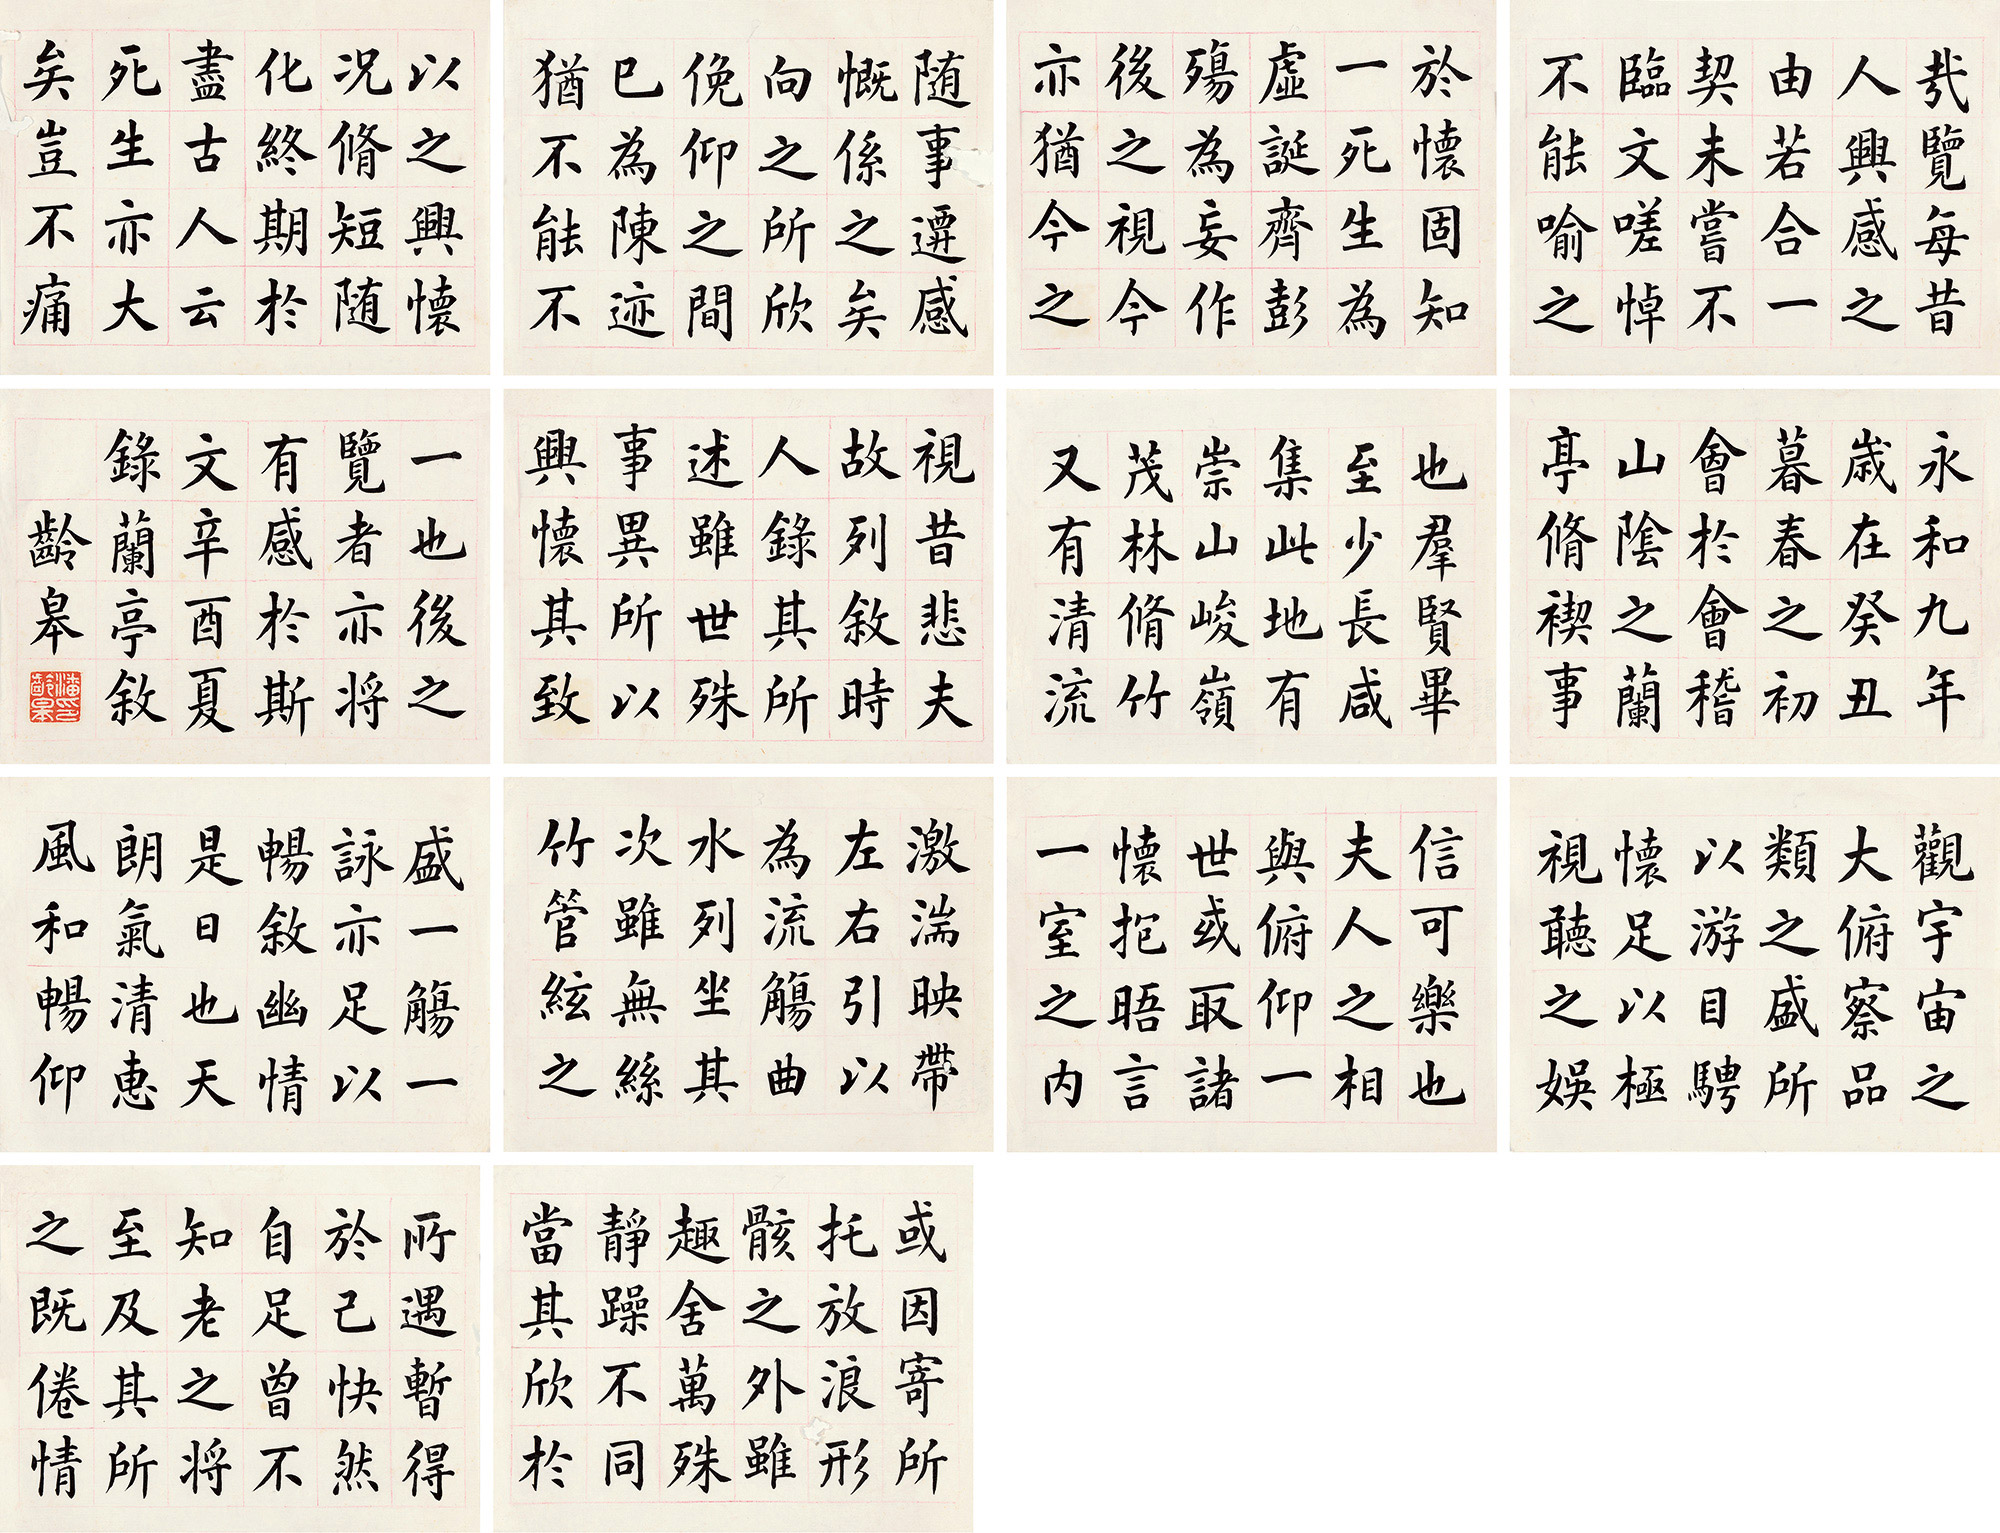 永和九年
歲在癸丑
暮春之初
會於會稽
山陰之蘭
亭脩禊事
也羣賢畢
至少長咸
集此地有
崇山峻嶺
茂林脩竹
又有清流
激湍映帶
左右引以
為流觴曲
水列坐其
次雖無絲
竹管絃之
盛一觴一
詠亦足以
暢敘幽情
是日也天
朗氣清惠
風和暢仰
觀宇宙之
大俯察品
類之盛所
以游目騁
懷足以極
視聽之娛
信可樂也
夫人之相
與俯仰一
世或取諸
懷抱晤言
一室之內
或因寄所
托放浪形
骸之外雖
趣舍萬殊
靜躁不同
當其欣於
所遇暫得
於己快然
自足曾不
知老之將
至及其所
之既倦情
随事遷感
慨係之矣
向之所欣
俛仰之間
已為陳迹
猶不能不
以之興懷
況脩短随
化終期於
盡古人云
死生亦大
矣豈不痛
哉覽每昔
人興感之
由若合一
契未嘗不
臨文嗟悼
不能喻之
於懷固知
一死生為
虛誕齊彭
殤為妄作
後之視今
亦猶今之
視昔悲夫
故列敘時
人錄其所
述雖世殊
事異所以
興懷其致
一也後之
覽者亦將
有感於斯
文辛酉夏
錄蘭亭敘
齡皋
潘印齡皋